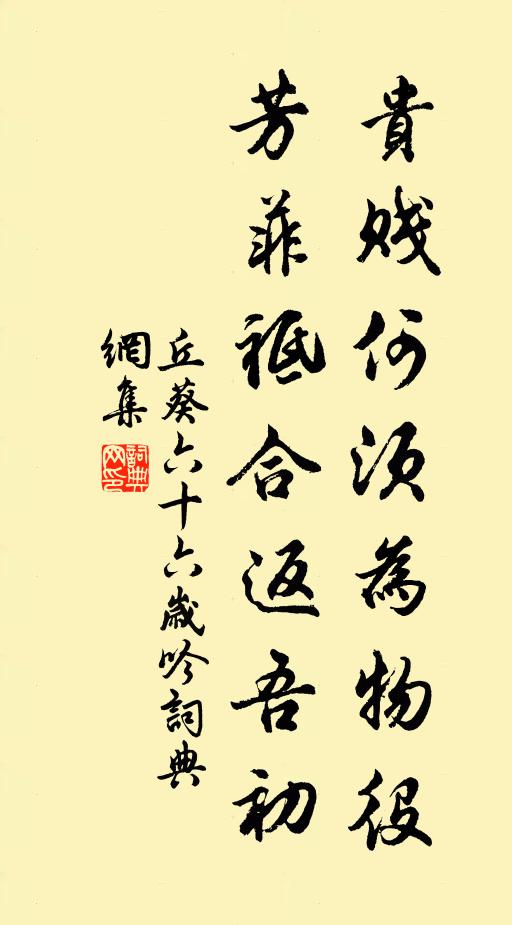 貴賤何須為物役
芳菲祗合返吾初
丘葵六十六歲吟詞典
網集
詞典
网印